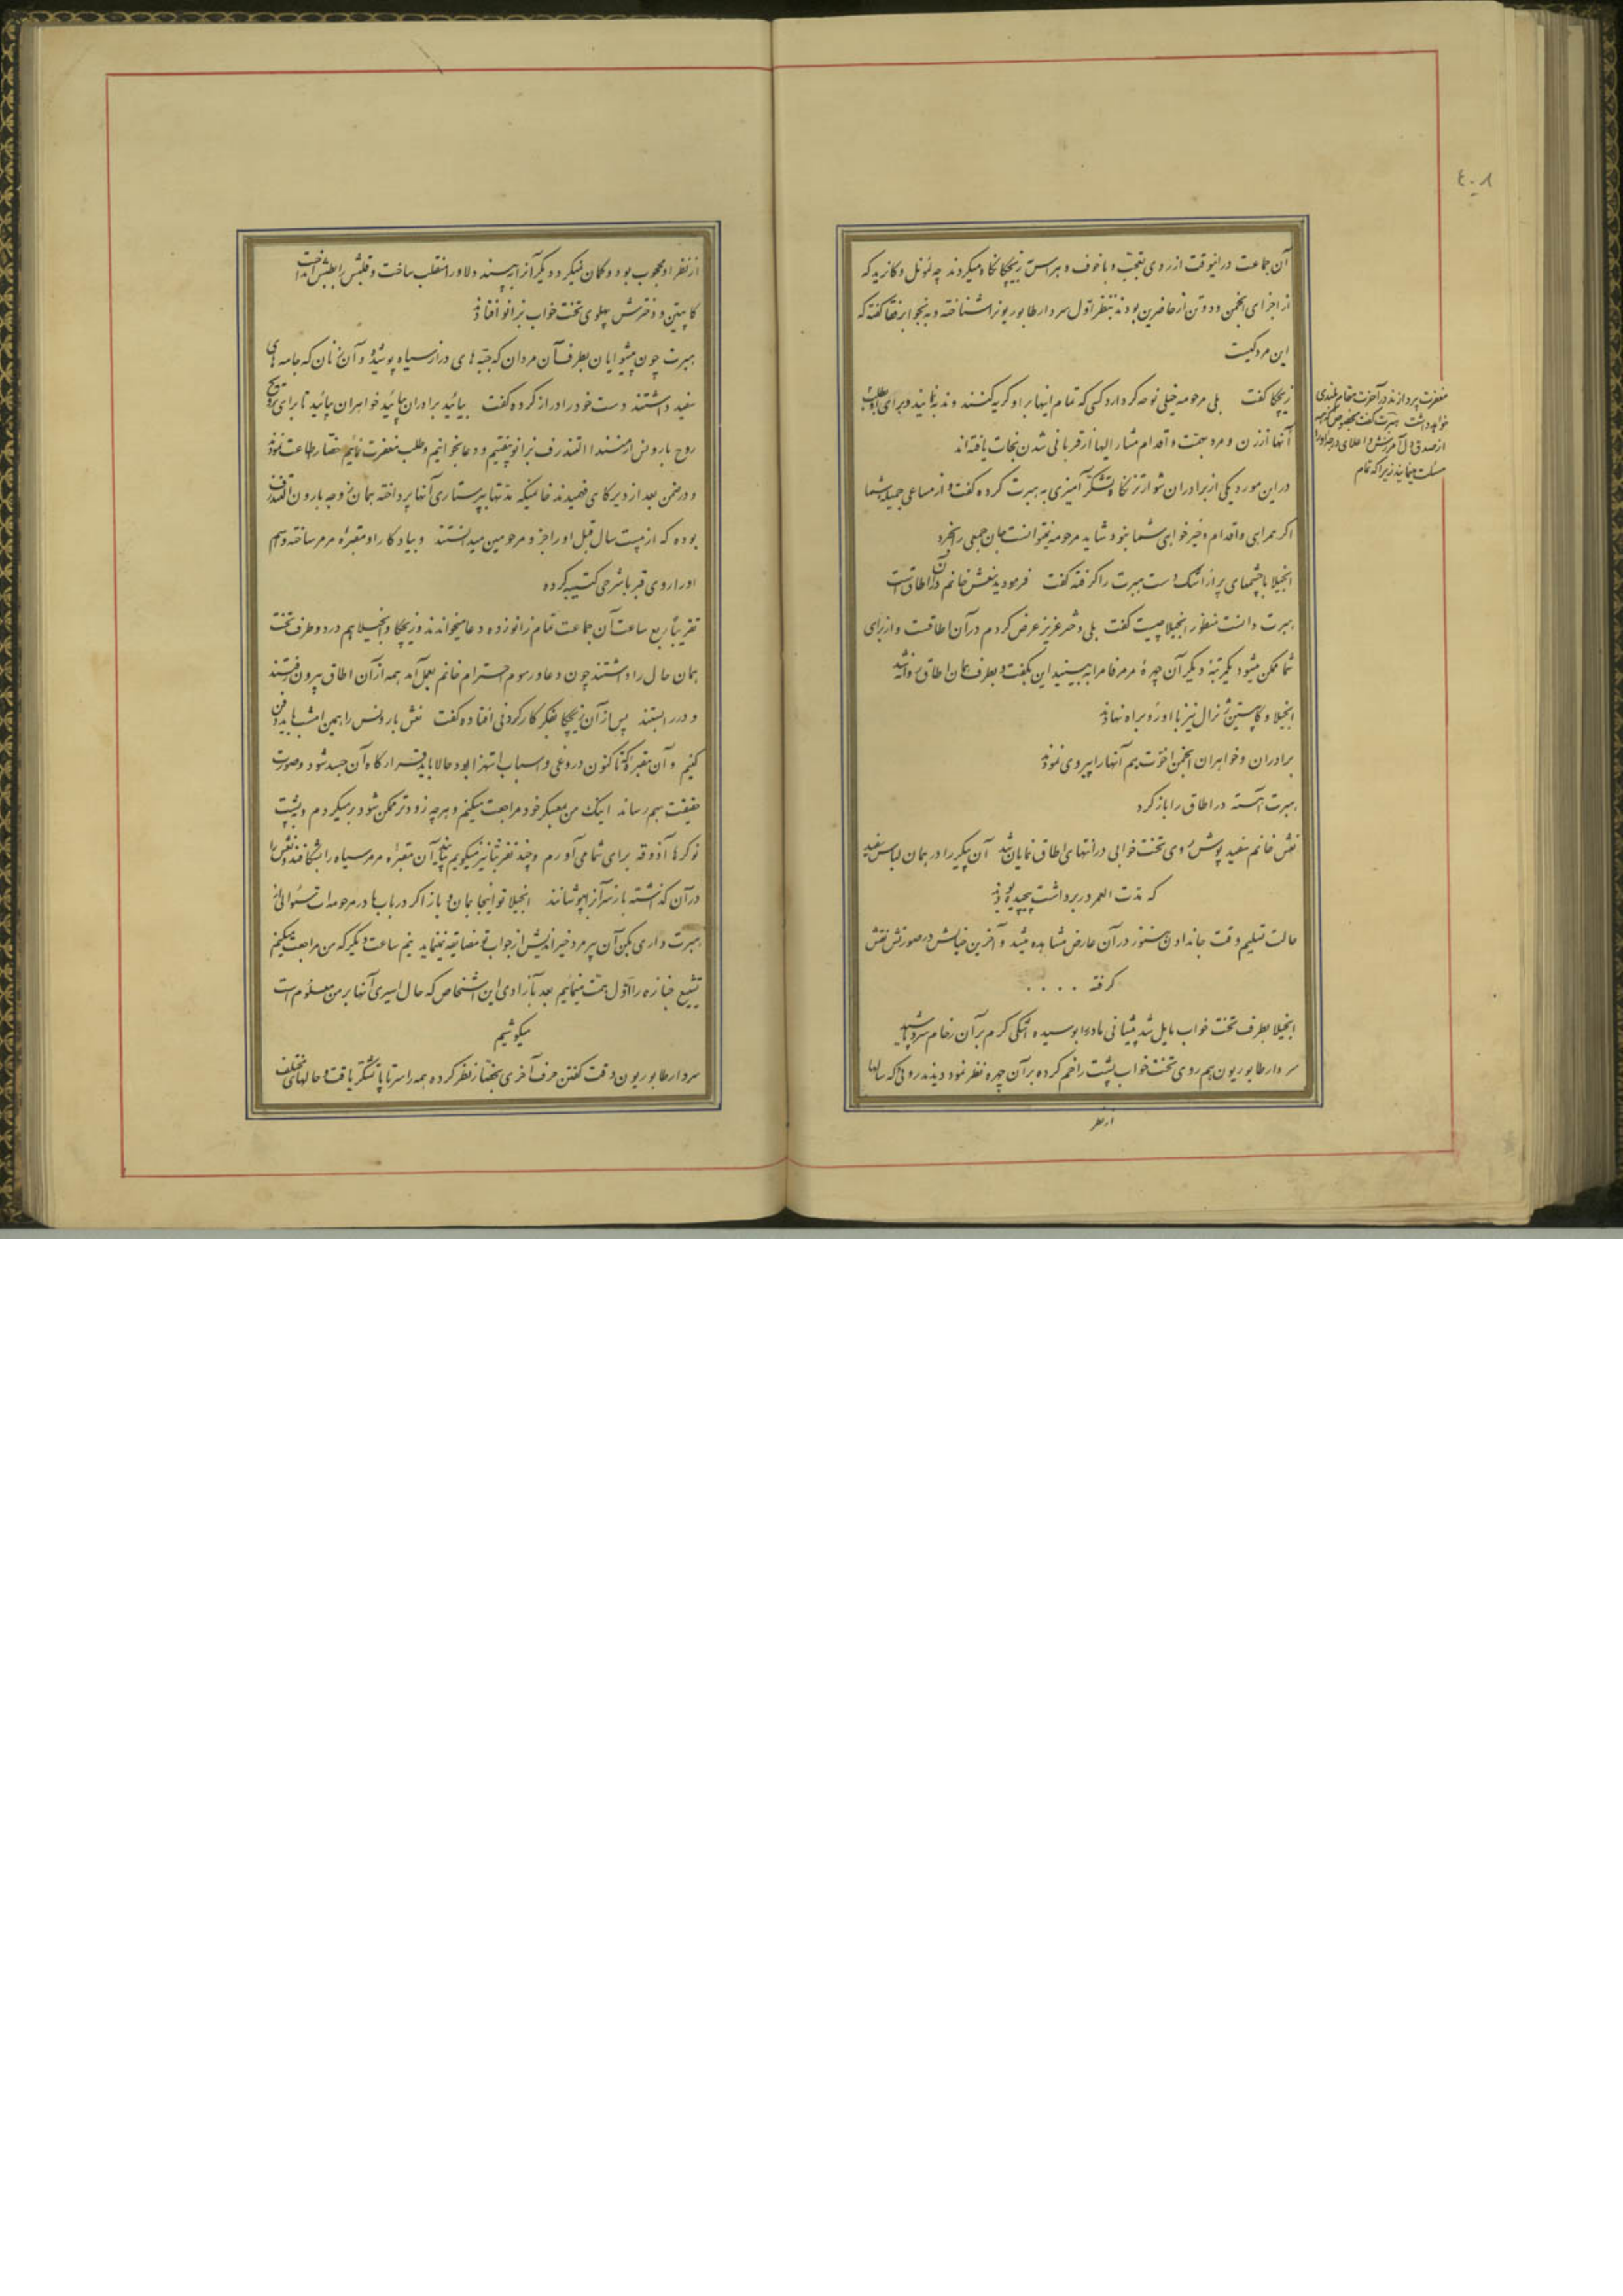 ٤٠٨
آن جماعت در اینوقت از روی تعجب و با خوف و هراس زیچکا نگاه میکردند چه لئونل و کانریه که
از اجزای انجمن و دو تن از حاضرین بودند بنظر اول سردار طابوریونرا شناخته و به نجوا برفقا گفته که
این مرد کیست
زیچکا گفت بلی مرحومه خیلی نوحه گر دارد کسی که تمام اینها بر او گریه کنند و ندبه نمایند و برای او طلب
مغفرت پردازند در آخرت مقام بلندی
خواهد داشت هبرت گفت بخصوص که همه
از صدق دل آمرزش و اعلای درجه او را
مسئلت مینمایند زیرا که تمام
آنها از زن و مرد بهمت و اقدام مشار الیها از قربانی شدن نجات یافته اند
در این مورد یکی از برادران شوارتز نگاه تشکر آمیزی به هبرت کرده گفت و از مساعی جمیله شما
اگر همراهی و اقدام و خیر خواهی شما نبود شاید مرحومه نمیتوانست جان جمعی را بخرد
انجیلا با چشمهای پر از اشک دست هبرت را گرفته گفت فرمودید نعش خانم در آن اطاق است
هبرت دانست منظور انجیلا چیست گفت بلی دختر عزیز عرض کردم در آن اطاقست و از برای
شما ممکن میشود یکمرتبه دیگر آن چهرهٔ مرمر فام را به بینید این بگفت و بطرف همان اطاق روانه شد
انجیلا و کاپیتن ژنرال نیز با او رو براه نهادند
برادران و خواهران انجمن اخوت هم آنها را پیروی نمودند
هبرت آهسته در اطاق را باز کرد
نعش خانم سفید پوش روی تخت خوابی در انتهای اطاق نمایان شد آن پیکر را در همان لباس سفید
که مدت العمر در بر داشت پیچیده بودند
حالت تسلیم وقت جاندادن هنوز در آن عارض مشاهده میشد و آخرین خیالش در صورتش نقش
گرفته . . . .
انجیلا بطرف تخت خواب مایل شد پیشانی مادر را بوسیده اشکی گرم بر آن رخام سرد پاشید
سردار طابوریون هم روی تخت خواب پشت را خم کرده بر آن چهره نظر نمود دید روئی که سالها
از نظر
از نظر او محجوب بود و گمان نمیکرد دیگر آنرا به بیند دلاور را منقلب ساخت و قلبش را بطپش انداخت
کاپیتن و دخترش پهلوی تخت خواب بزانو افتادند
هبرت چون پیشوایان بطرف آن مردان که جبه های دراز سیاه پوشیده و آن زنان که جامه های
سفید داشتند دست خود را دراز کرده گفت بیائید برادران بیائید خواهران بیائید تا برای ترویح
روح بارونس ارمنسند التندرف بزانو بیفتیم و دعا بخوانیم و طلب مغفرت نمائیم حضار اطاعت نمودند
و در ضمن بعد از دیر گاهی فهمیدند خانمیکه مدتها بپرستاری آنها پرداخته همان زوجه بارون التندرف
بوده که از بیست سال قبل او را جزو مرحومین میدانستند و بیادگار او مقبرهٔ مرمر ساخته و سم
او را روی قبر با شرحی کتیبه کرده
تقریباً ربع ساعت آن جماعت تمام زانو زده دعا میخواندند و زیچکا و انجیلا هم در دو طرف تخت
همان حال را داشتند چون دعا و رسوم احترام خانم بعمل آمد همه از آن اطاق بیرون رفتند
و در را بستند پس از آن زیچکا بفکر کار کردنی افتاده گفت نعش بارونس را همین امشب باید دفن
کنیم و آن مقبره که تا کنون دروغی و اسباب استهزا بود حالا باید قرارگاه آن جسد شود و صورت
حقیقت بهم رساند اینک من بمعسکر خود مراجعت میکنم و هر چه زودتر ممکن شود بر میگردم و بیست
نوکرها آذوقه برای شما می آورم و چند نفر بنا نیز میگویم بیایند آن مقبره مرمر سیاه را بشکافند و نعش را
در آن گذاشته باز سر آنرا بپوشانند انجیلا تو اینجا بمان و باز اگر در باب مادر مرحومه ات سئوالی از
هبرت داری بکن آن پیر مرد خیر اندیش از جواب تو مضایقه نمینماید نیم ساعت دیگر که من مراجعت میکنم
تشییع جنازه را اول همت مینمائیم بعد بآزادی این اشخاص که حال اسیری آنها بر من معلوم است
میکوشیم
سردار طابوریون وقت گفتن حرف آخری بحضار نظر کرده همه را سر تا پا تشکر یافت و حالهای مختلف